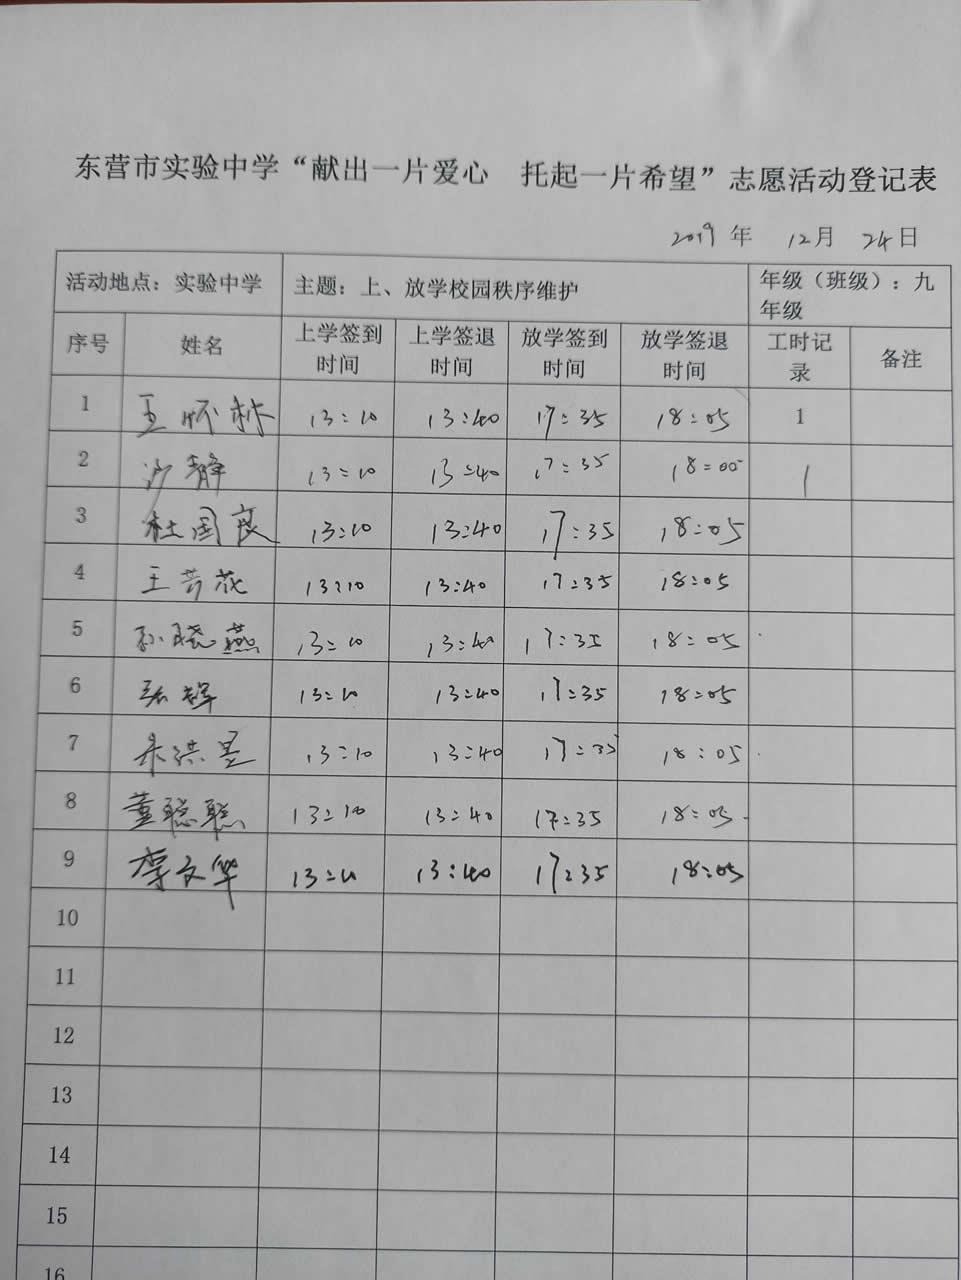 东营市实验中学“献出一片爱心 托起一片希望”志愿活动登记表
2019 年 12月 24日
活动地点：实验中学 主题：上、放学校园秩序维护 年级（班级）：九年级
序号 姓名 上学签到时间 上学签退时间 放学签到时间 放学签退时间 工时记录 备注
1 王怀林 13:10 13:40 17:35 18:05 1
2 沙静 13:10 13:40 17:35 18:00 1
3 杜国良 13:10 13:40 17:35 18:05
4 王芳花 13:10 13:40 17:35 18:05
5 孙晓燕 13:10 13:40 17:35 18:05
6 张辉 13:10 13:40 17:35 18:05
7 13:10 13:40 17:35 18:05
8 董聪聪 13:10 13:40 17:35 18:05
9 李文华 13:10 13:40 17:35 18:05
10
11
12
13
14
15
16